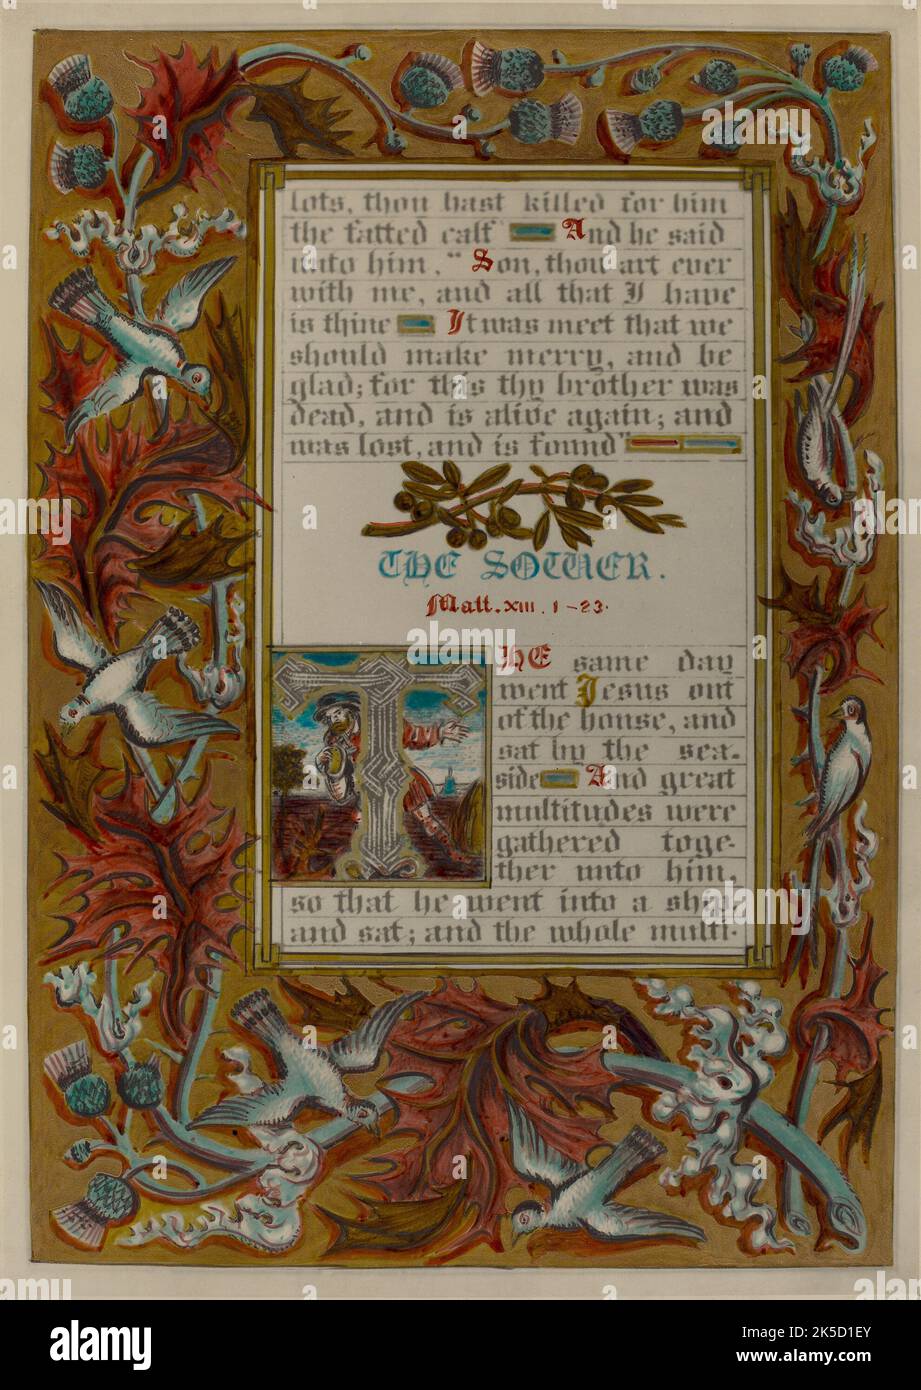 lots, thou hast killed for him
the fatted calf" And he said
unto him, "Son, thou art ever
with me, and all that I have
is thine It was meet that we
should make merry, and be
glad; for this thy brother was
dead, and is alive again; and
was lost, and is found"
THE SOWER.
Matt. XIII. 1-23.
THE same day
went Jesus out
of the house, and
sat by the sea-
side And great
multitudes were
gathered toge-
ther unto him,
so that he went into a ship,
and sat; and the whole multi-
alamy
Image ID: 2K5D1EY
www.alamy.com